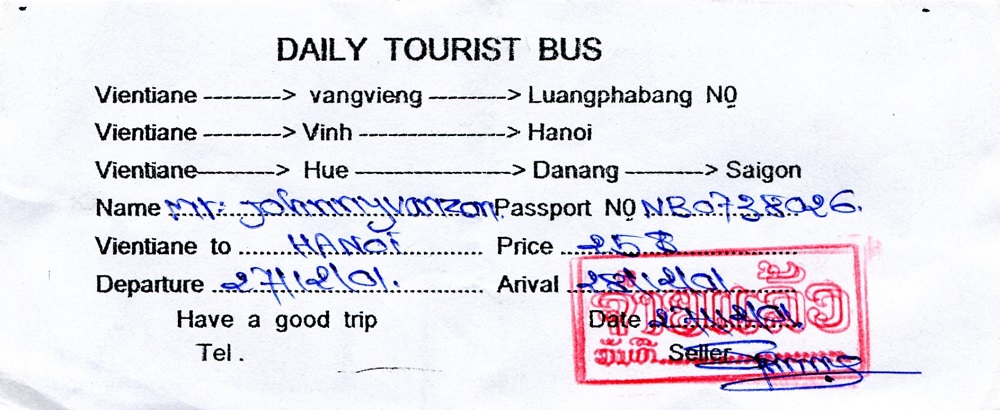 DAILY TOURIST BUS
Vientiane --------> vangvieng --------> Luangphabang NO
Vientiane --------> Vinh ----------------> Hanoi
Vientiane--------> Hue ----------------> Danang --------> Saigon
Name Mr: Johnny vanzon Passport NO NB0738026.
Vientiane to HANOI Price 25$
Departure 27/12/01. Arival 28/12/01
Have a good trip Date 27/12/01
Tel. ຈ່າຍແລ້ວ
ວັນທີ Seller